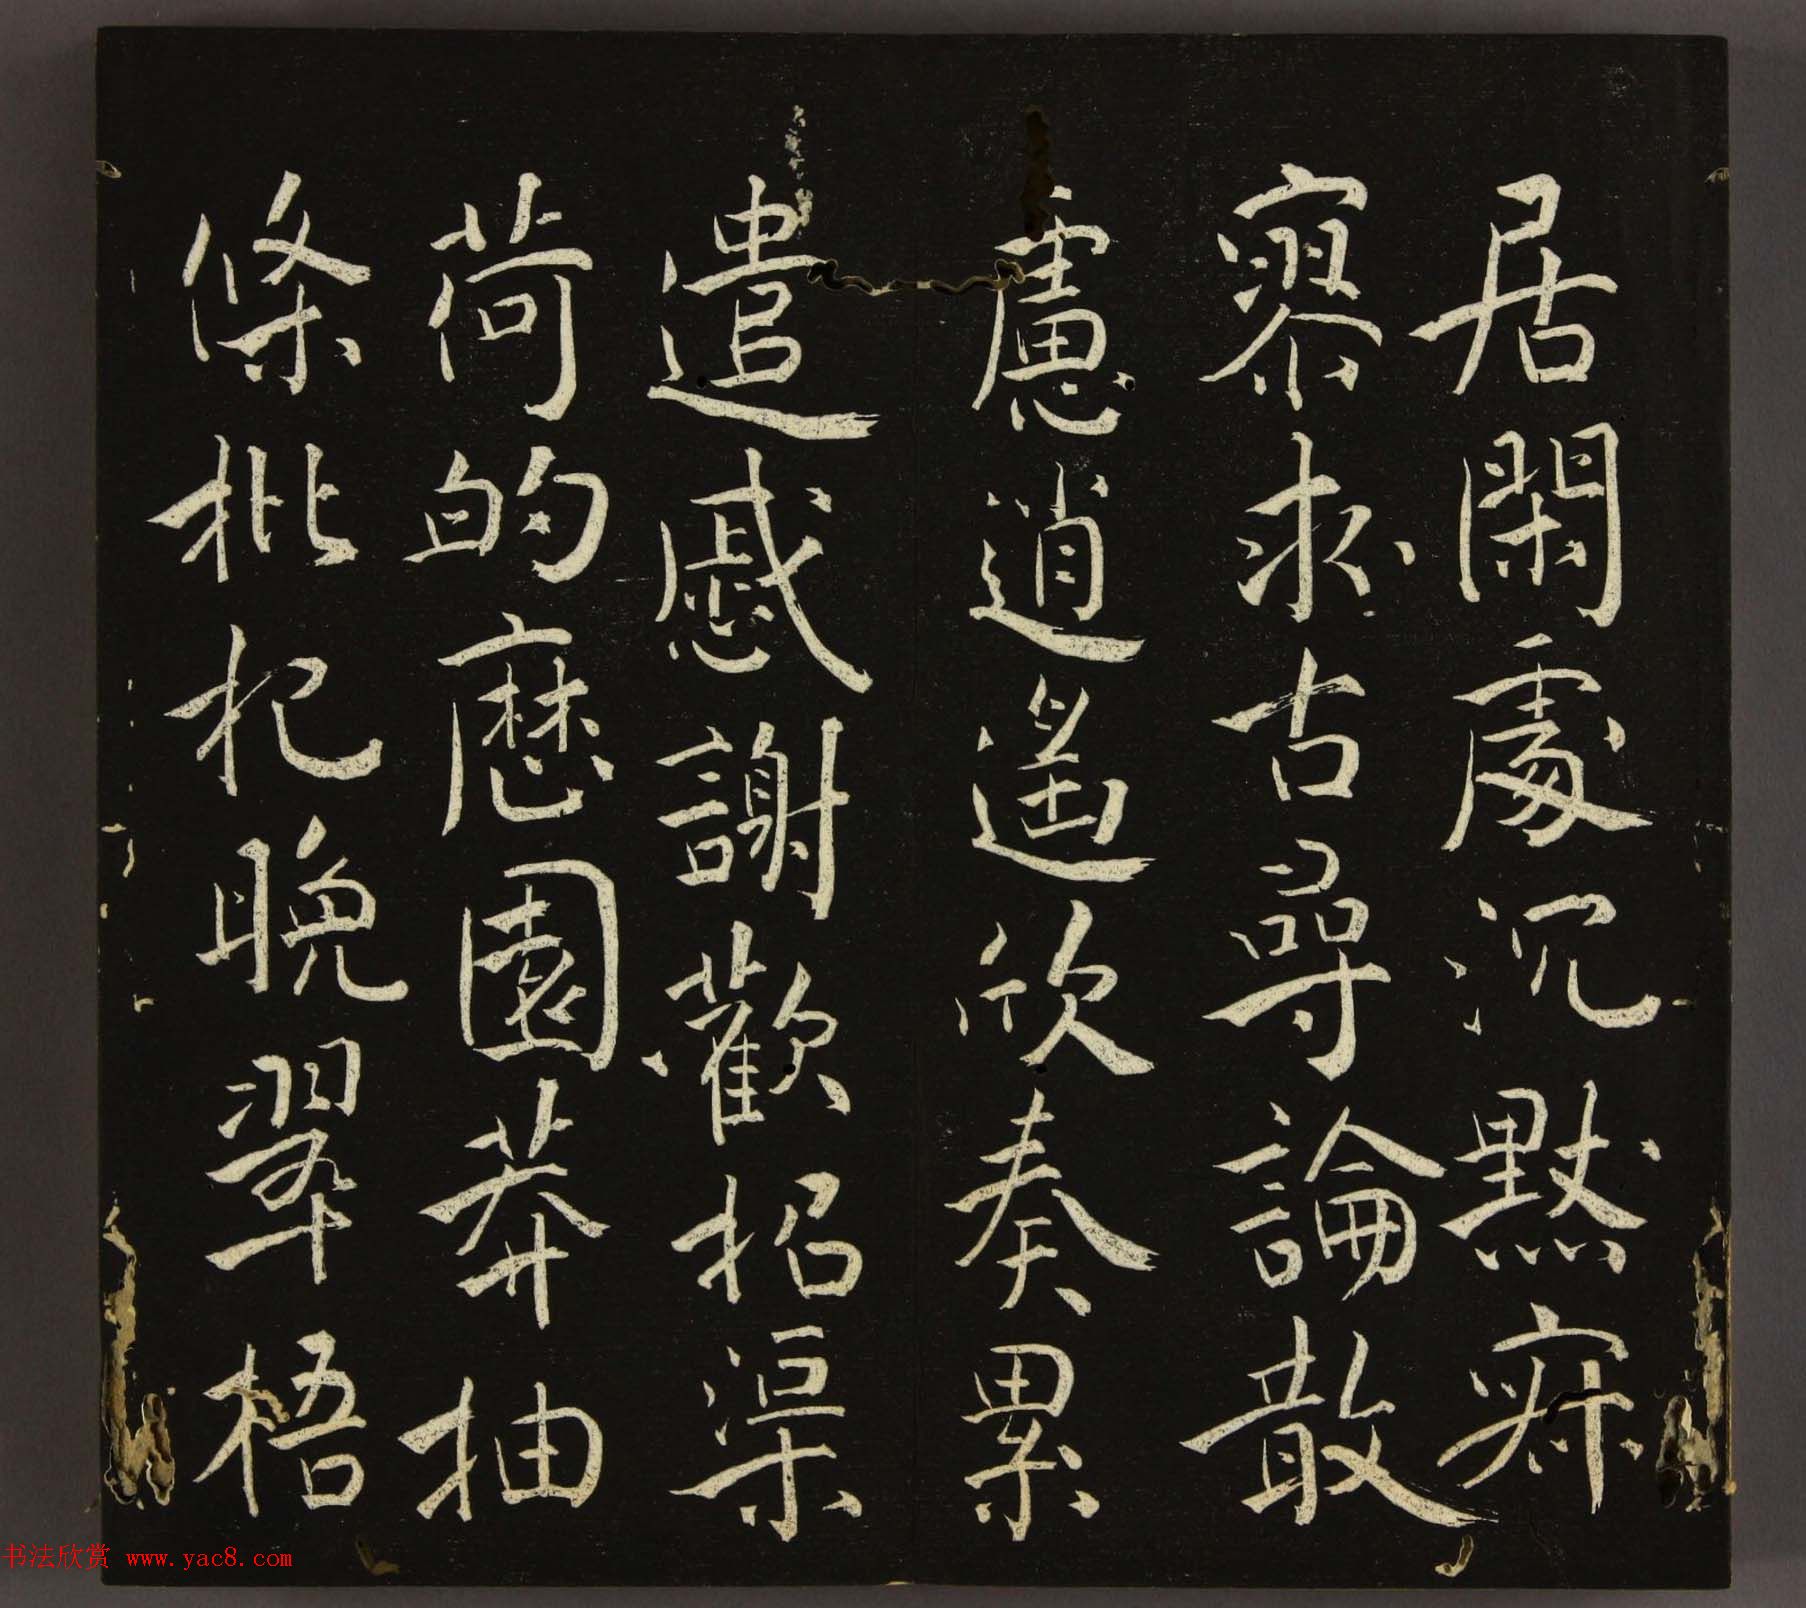 居閑處沉默寂
寥求古尋論散
慮逍遙欣奏累
遣慼謝歡招渠
荷的歷園莽抽
條枇杷晚翠梧
书法欣赏 www.yac8.com